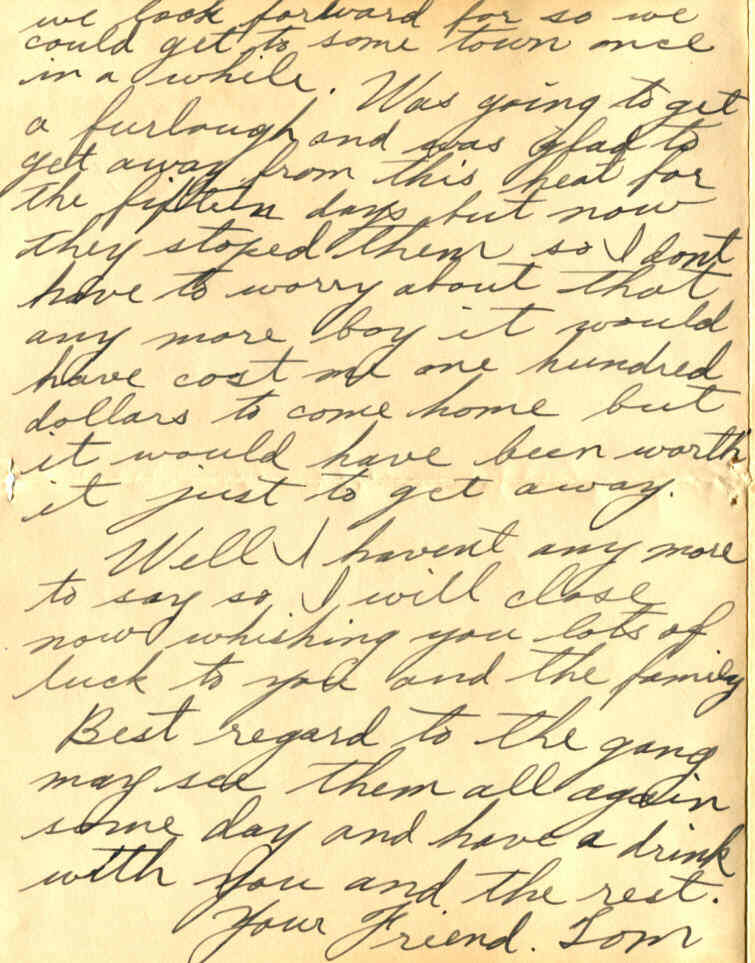 we look forward for so we
could get to some town once
in a while. Was going to get
a furlough and was glad to
get away from this heat for
the fifteen days but now
they stoped them so I dont
have to worry about that
any more boy it would
have cost me one hundred
dollars to come home but
it would have been worth
it just to get away.
Well I havent any more
to say so I will close
now whishing you lots of
luck to you and the family
Best regard to the gang
may see them all again
some day and have a drink
with you and the rest.
Your Friend. Tom